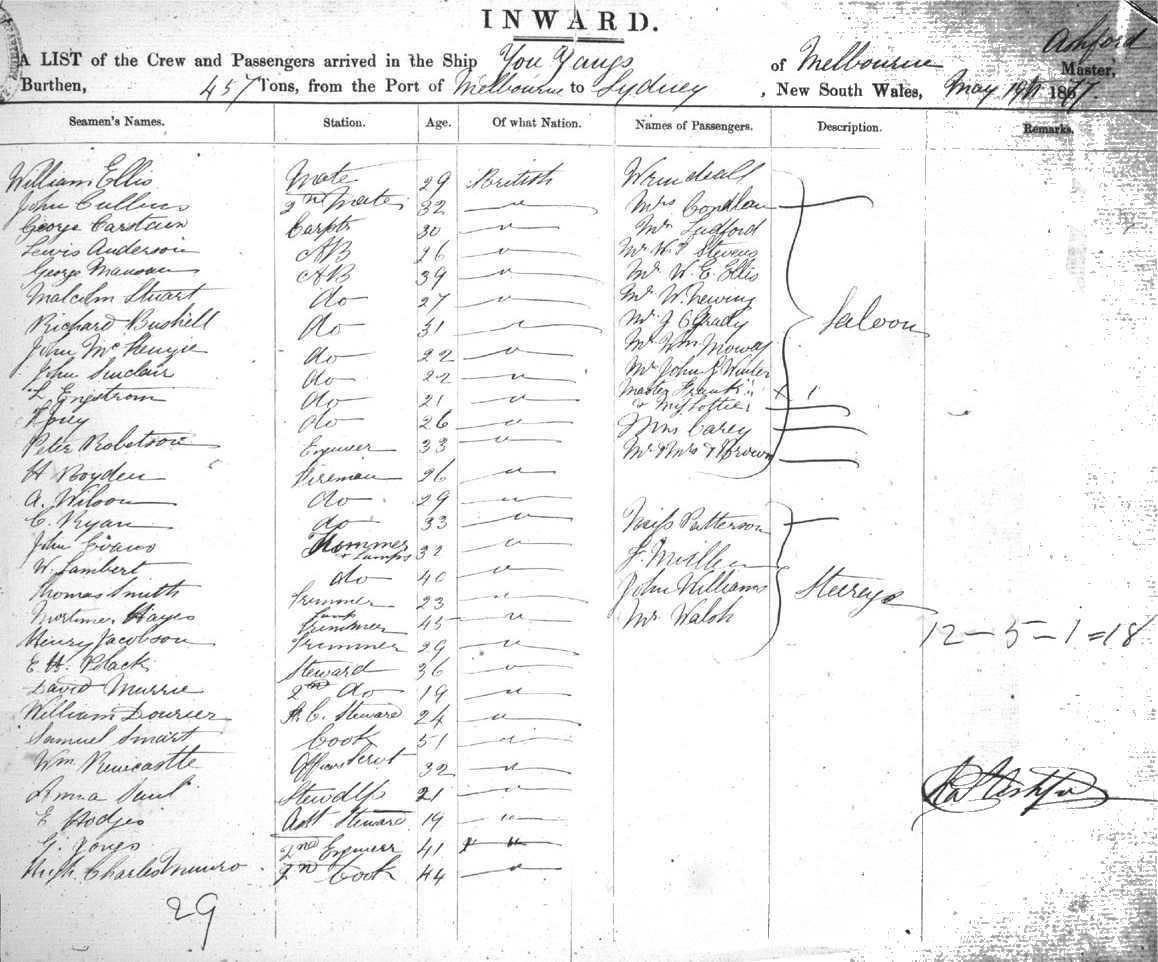 INWARD.
Ashford
A LIST of the Crew and Passengers arrived in the Ship You Yangs of Melbourne Master,
Burthen, 457 Tons, from the Port of Melbourne to Sydney, New South Wales, May 19th 1877.
Seamen's Names. Station. Age. Of what Nation. Names of Passengers. Description. Remarks.
William Ellis Mate 29 British
John Cullens 2nd Mate 32 " Mrs
George Carstairn Carptr 30 " Mr Ludford
Lewis Anderson AB 26 " Mr W. Stevens
George Manson AB 39 " Mr W. E. Ellis
Malcolm Stuart do 27 " Mr W. Newing
Richard Bushell do 31 " Mr J O'Grady Saloon
John McKenzie do 22 " Mr Wm
John Sinclair do 22 " Mr John J Winter
L Engstrom do 21 " Master Frank " 1
do 26 " Mrs Carey
Peter Robertson Engineer 33 " Mr & Mrs Brown
H Boyden Fireman 26 "
A. Wilson do 29 "
C. Ryan do 33 " Miss Patterson
John Evans & Lamps 32 "
W. Lambert do 40 " John Williams Steerage
Thomas Smith Trimmer 23 " Mr Walsh
Mortimer Hayes Lamp Trimmer 45 "
12 - 5 - 1 = 18
Henry Jacobson Trimmer 29 "
E. H. Polack Steward 36 "
David Murrie 2nd do 19 "
William Dourier F. C. Steward 24 "
Samuel Smart Cook 51 "
Wm Newcastle Officers Servt 32 "
Anna Saul Stewdss 21 "
E Hodges Asst Steward 19 "
G. Yonges 2nd Engineer 41 "
Hugh Charles Munro 2nd Cook 44 "
29